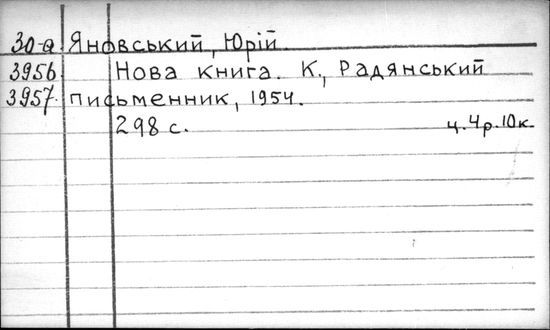 30-а Яновський, Юрій.
3956 Нова книга. К., Радянський
3957. письменник, 1954.
298 с. ц. 4 р. 10 к.